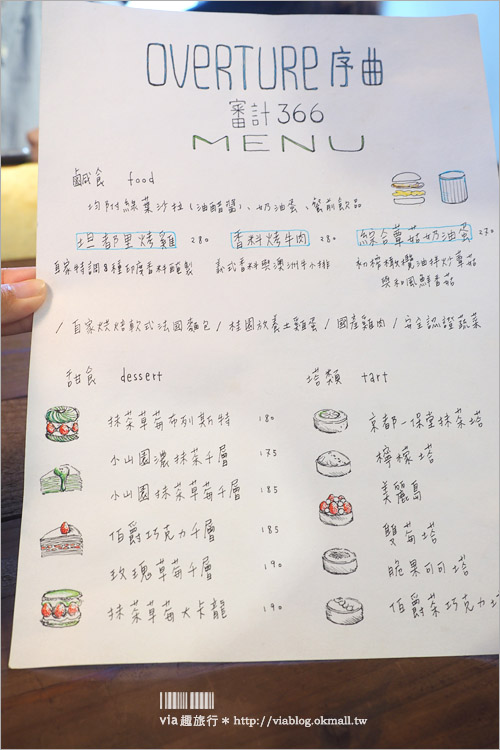 OVERTURE 序曲
審計 366
MENU
鹹食 food
均附綠葉沙拉(油醋醬)、奶油蛋、餐前飲品
坦都里烤雞 280 香料烤牛肉 280 綜合蕈菇奶油蛋 270
自家特調8種印度香料醃製 義式香料與澳洲牛小排 初榨橄欖油拌炒蕈菇
與和風鮮香菇
/ 自家烘烤軟式法國麵包 / 桂園放養土雞蛋 / 國產雞肉 / 安全認證蔬菜
甜食 dessert 塔類 tart
抹茶草莓布列斯特 180 京都一保堂抹茶塔
小山園濃抹茶千層 175 檸檬塔
小山園抹茶草莓千層 185 美麗島
伯爵巧克力千層 185 雙莓塔
玫瑰草莓千層 190 脆果可可塔
抹茶草莓大卡龍 190 伯爵茶巧克力塔
via 趣旅行 * http://viablog.okmall.tw